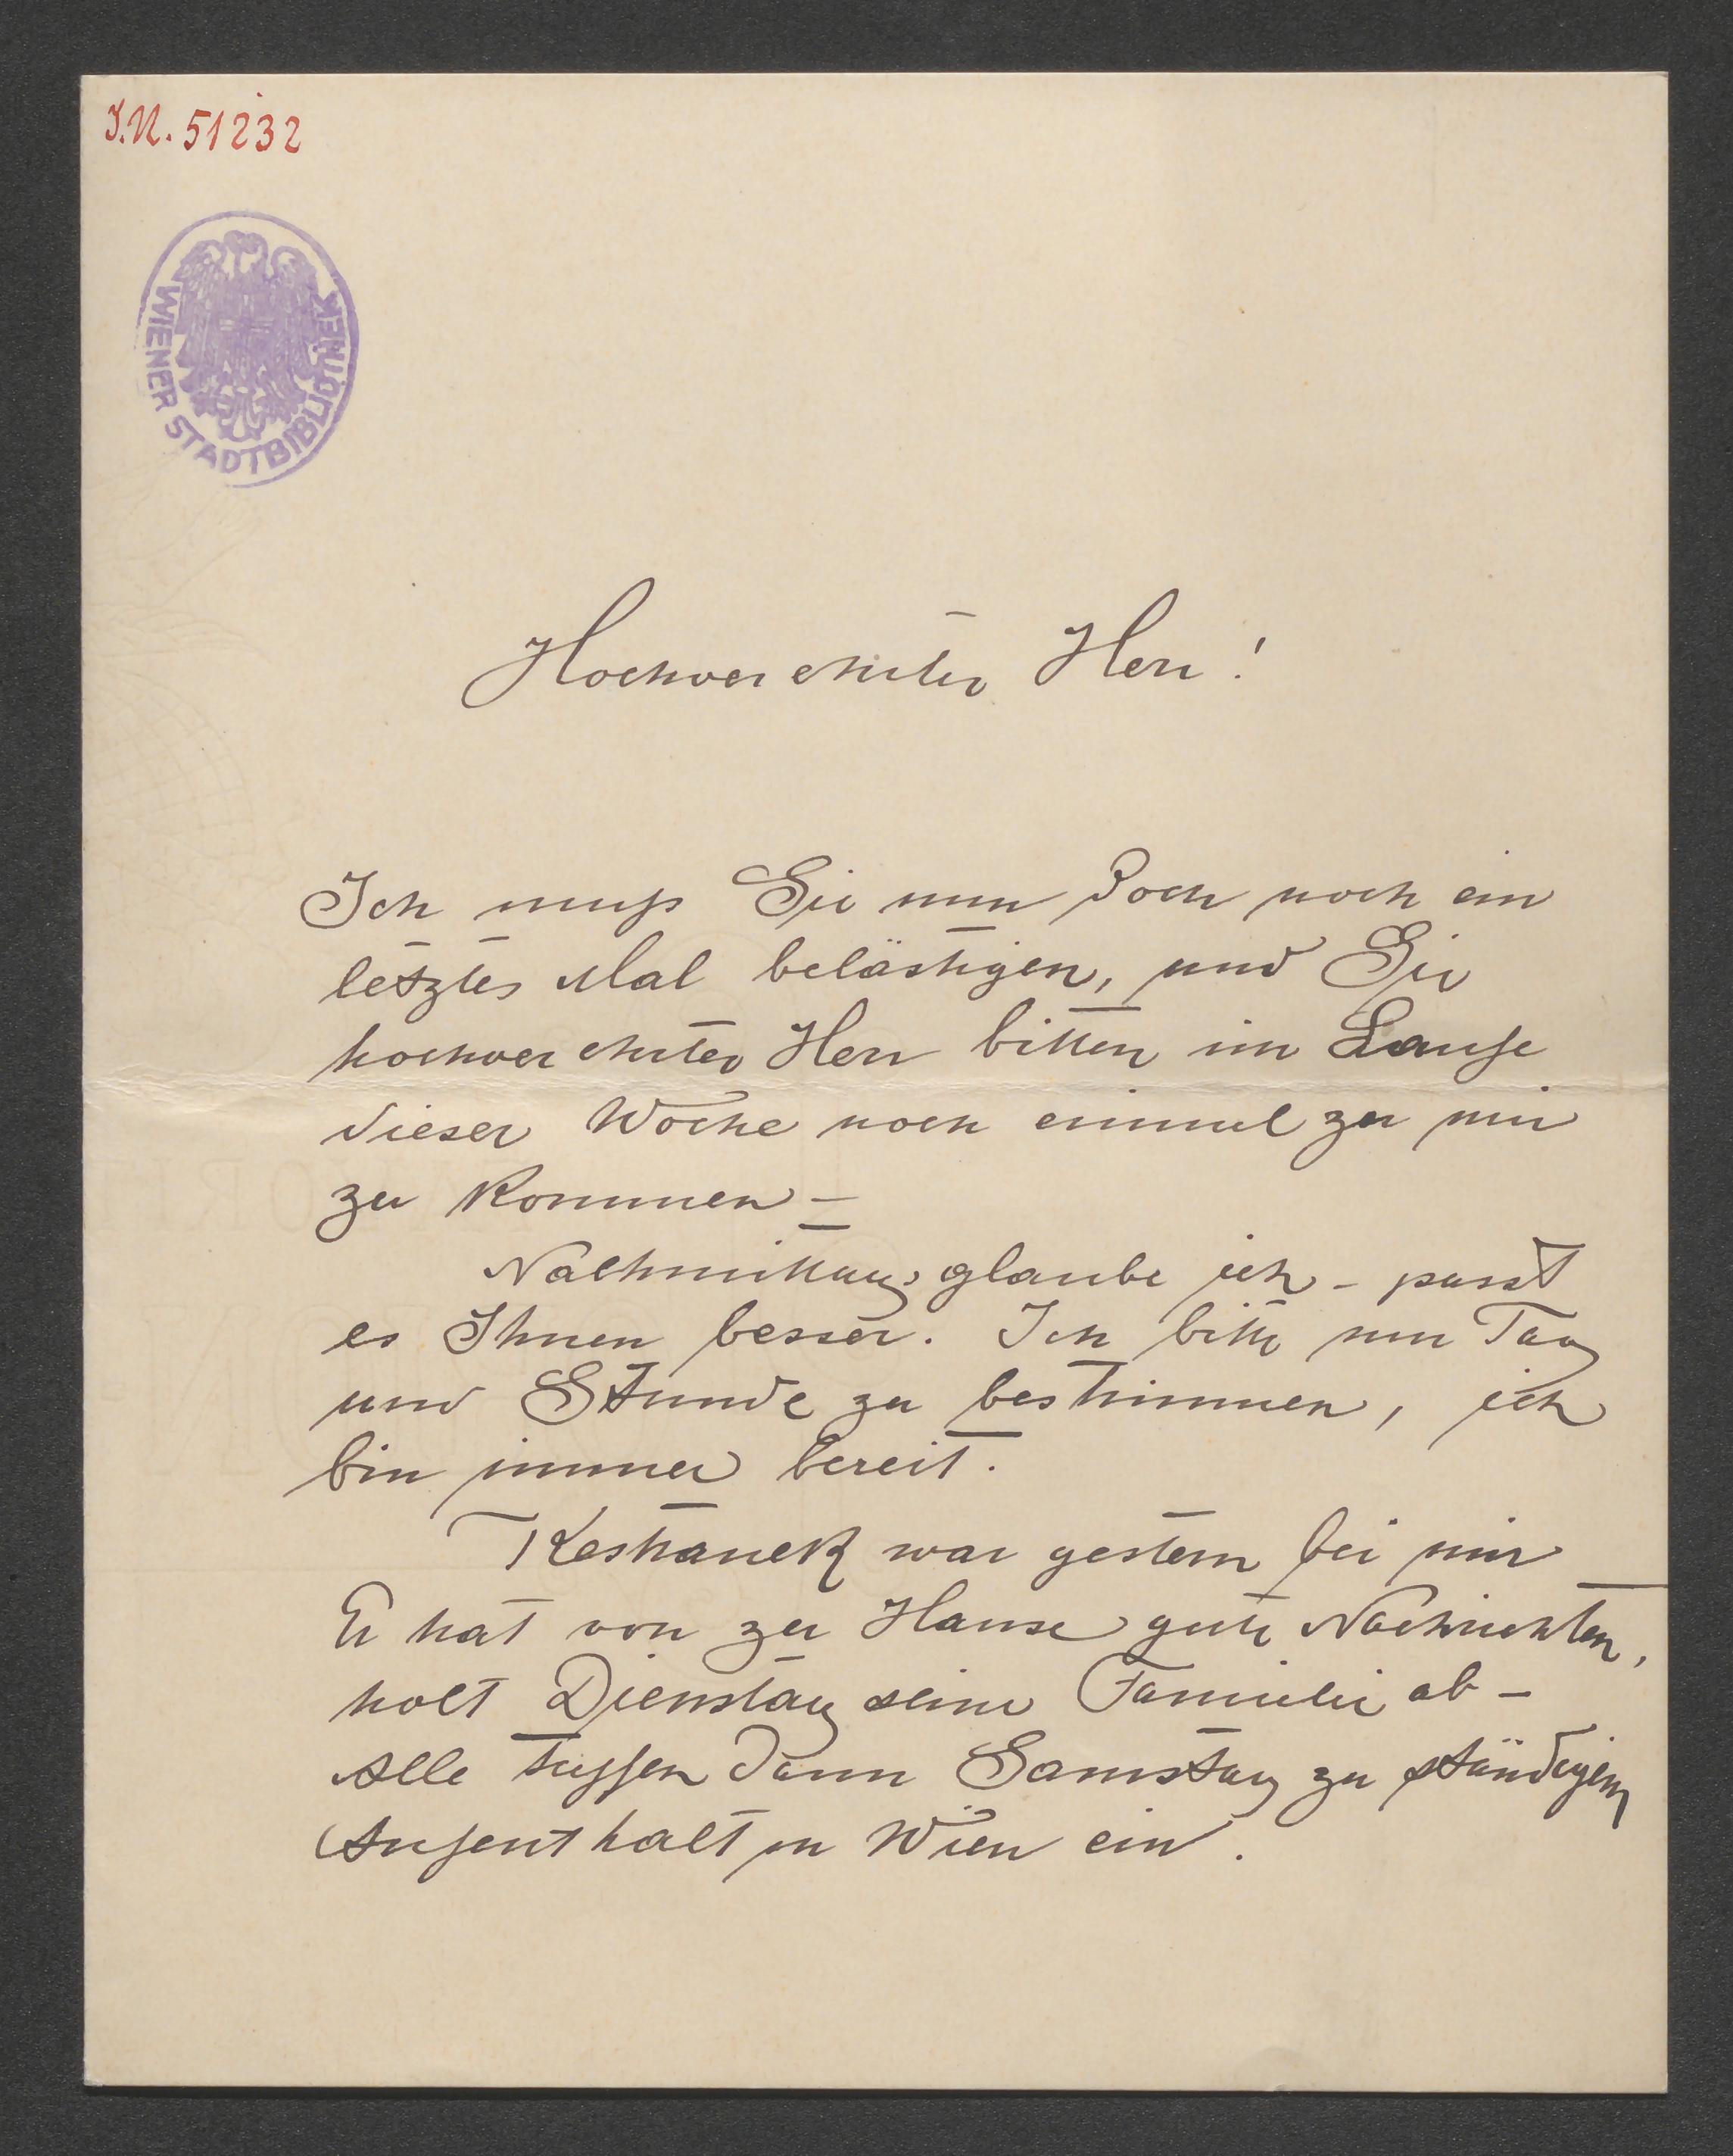 J.N. 51232
WIENER STADTBIBLIOTHEK
Hochverehrter Herr!
Ich muß Sie nun doch noch ein
letztes Mal belästigen, und Sie
hochverehrter Herr bitten im Laufe
dieser Woche noch einmal zu mir
zu kommen –
Nachmittag, glaube ich – passt
es Ihnen besser. Ich bitte nun Tag
und Stunde zu bestimmen, ich
bin immer bereit.
Kestranek war gestern bei mir
Er hat von zu Hause gute Nachrichten,
holt Dienstag seine Familie ab –
Alle treffen dann Samstag zu ständigem
Aufenthalt in Wien ein.